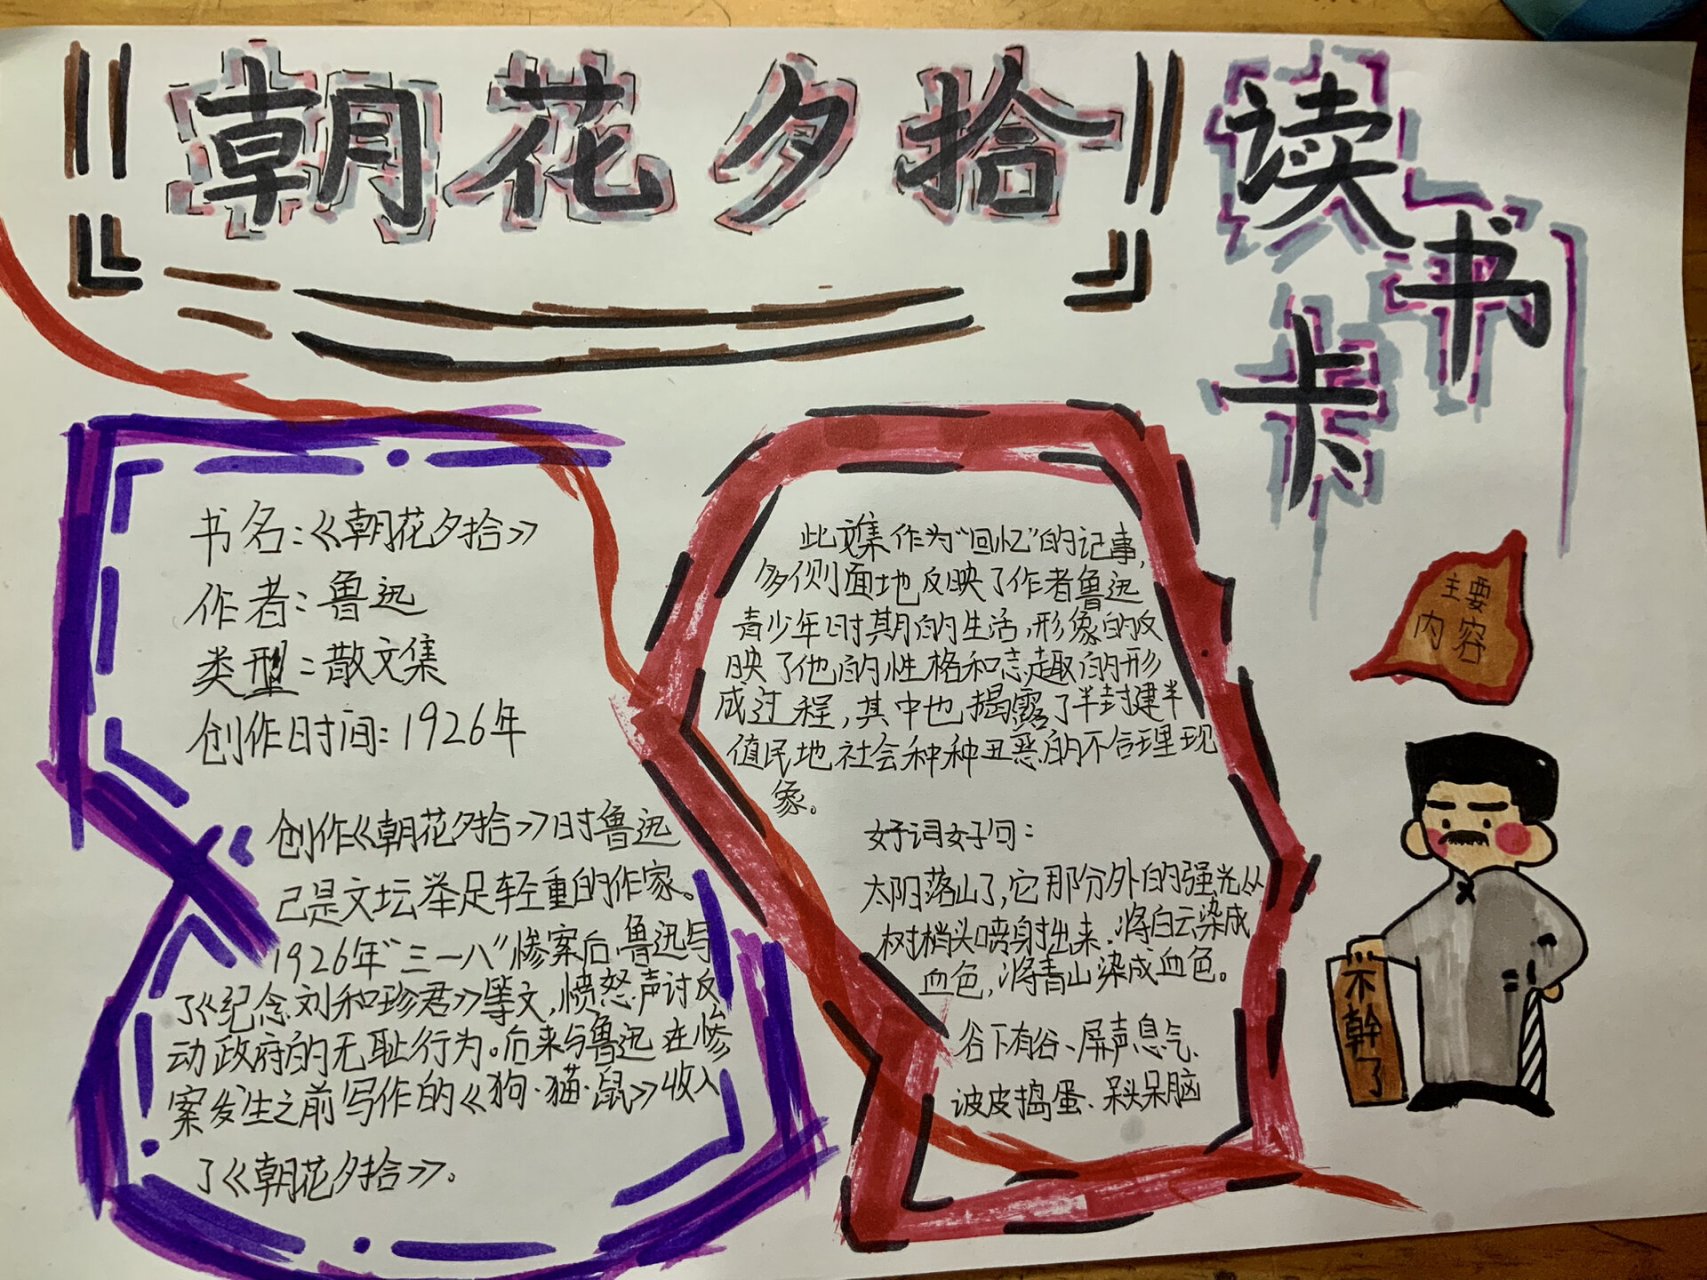 朝花夕拾
读书卡
书名:《朝花夕拾》
作者:鲁迅
类型:散文集
创作时间:1926年
创作《朝花夕拾》时鲁迅
已是文坛举足轻重的作家。
1926年“三一八”惨案后,鲁迅写
了《纪念刘和珍君》等文,愤怒声讨反
动政府的无耻行为。后来与鲁迅在惨
案发生之前写作的《狗·猫·鼠》收入
了《朝花夕拾》.
此文集作为“回忆”的记事,
多侧面地反映了作者鲁迅
青少年时期的生活,形象的反
映了他的性格和志趣的形
成过程,其中也揭露了半封建半
值民地社会种种丑恶的不合理现
象。
好词好句:
太阳落山了,它那分外的强光从
树梢头喷射出来,将白云染成
血色,将青山染成血色。
谷下有谷、屏声息气、
泼皮捣蛋、呆头呆脑
主要
内容
不幹了